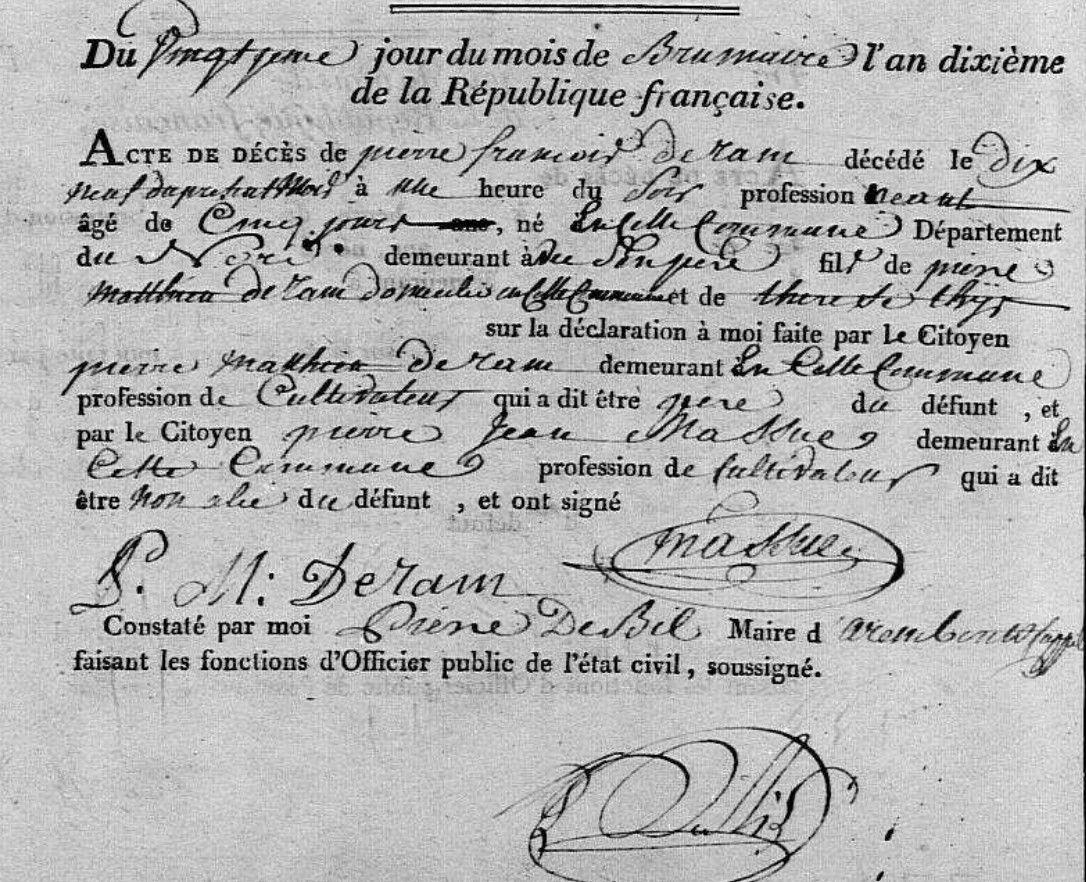 Du Vingtieme jour du mois de Brumaire l'an dixième
de la République française.
ACTE DE DÉCÈS de pierre francois De ram décédé le dix
neuf à une heure du Soir profession neant
âgé de Cinq jours ans, né En Cette Commune Département
du Nord demeurant à du Son pere fils de pierre
Matthieu De ram domicilié en Cette Commune et de therese thijs
sur la déclaration à moi faite par le Citoyen
pierre matthieu De ram demeurant En Cette Commune
profession de Cultivateur qui a dit être pere du défunt , et
par le Citoyen pierre Jean Massue demeurant En
Cette Commune profession de Cultivateur qui a dit
être non alié du défunt , et ont signé
massue
P. M: De ram
Constaté par moi Pierre De Bil Maire d
faisant les fonctions d'Officier public de l'état civil, soussigné.